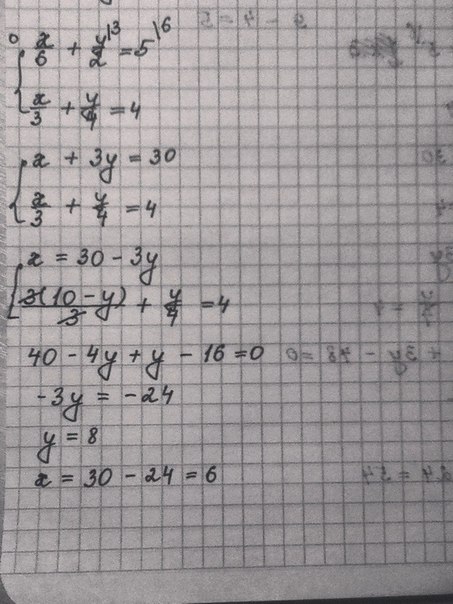 x/6 + y/2 \3 = 5 \6
x/3 + y/4 = 4
x + 3y = 30
x/3 + y/4 = 4
x = 30 - 3y
3(10 - y)/3 + y/4 = 4
40 - 4y + y - 16 = 0
-3y = -24
y = 8
x = 30 - 24 = 6